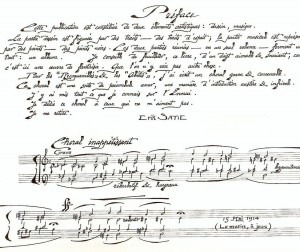 Préface
Cette publication est constituée de deux éléments artistiques: dessin, musique.
La partie dessin est figurée par des traits — des traits d'esprit; la partie musicale est représentée
par des points — des points noirs. Ces deux parties réunies — en un seul volume — forment un
tout: un album. Je conseille de feuilleter, ce livre, d'un doigt aimable & souriant; car
c'est ici une œuvre de fantaisie. Que l'on n'y voie pas autre chose.
Pour les "Recroquevillés" & les "Abêtis", j'ai écrit un choral grave & convenable.
Ce choral est une sorte de préambule amer, une manière d'introduction austère & infrivole.
J'y ai mis tout ce que je connais sur l'Ennui.
Je dédie ce choral à ceux qui ne m'aiment pas.
Je me retire.
ERIK SATIE
Choral inappétissant
Grave
15 MAI 1914
(Le matin, à jeun)